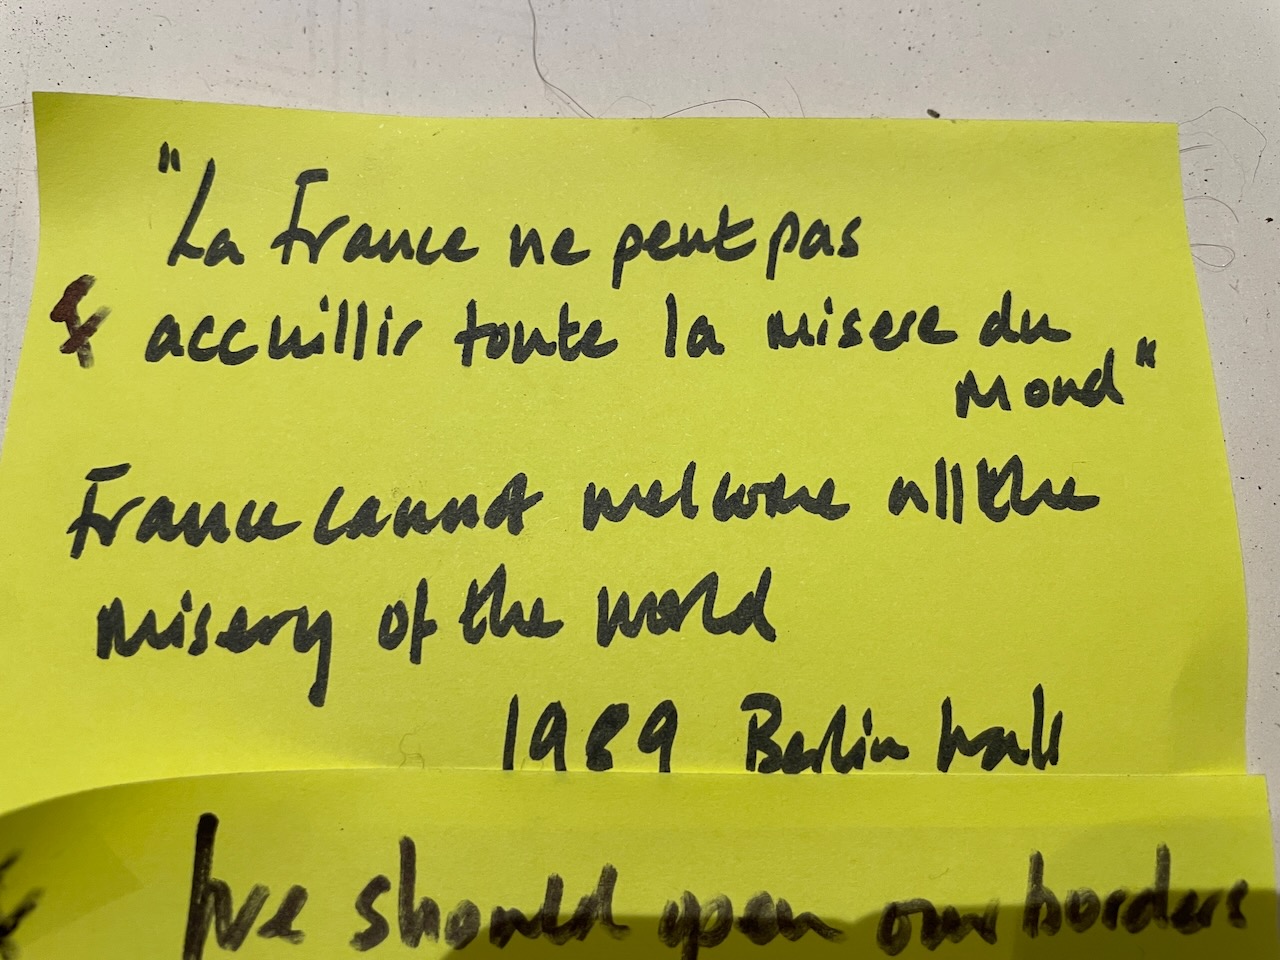 "La France ne peut pas
accuillir toute la misere du
Mond"
France cannot welcome all the
misery of the world
1989 Berlin wall
We should open our borders